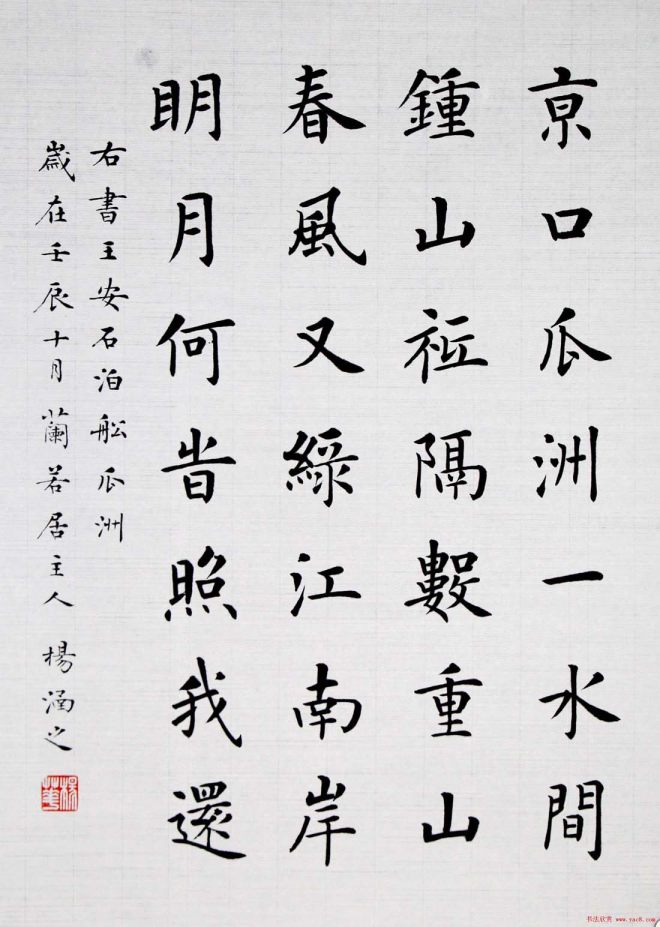 京口瓜洲一水間
鍾山衹隔數重山
春風又綠江南岸
明月何昔照我還
右書王安石泊船瓜洲
歲在壬辰十月蘭若居主人 楊涵之
书法欣赏 www.yac8.com